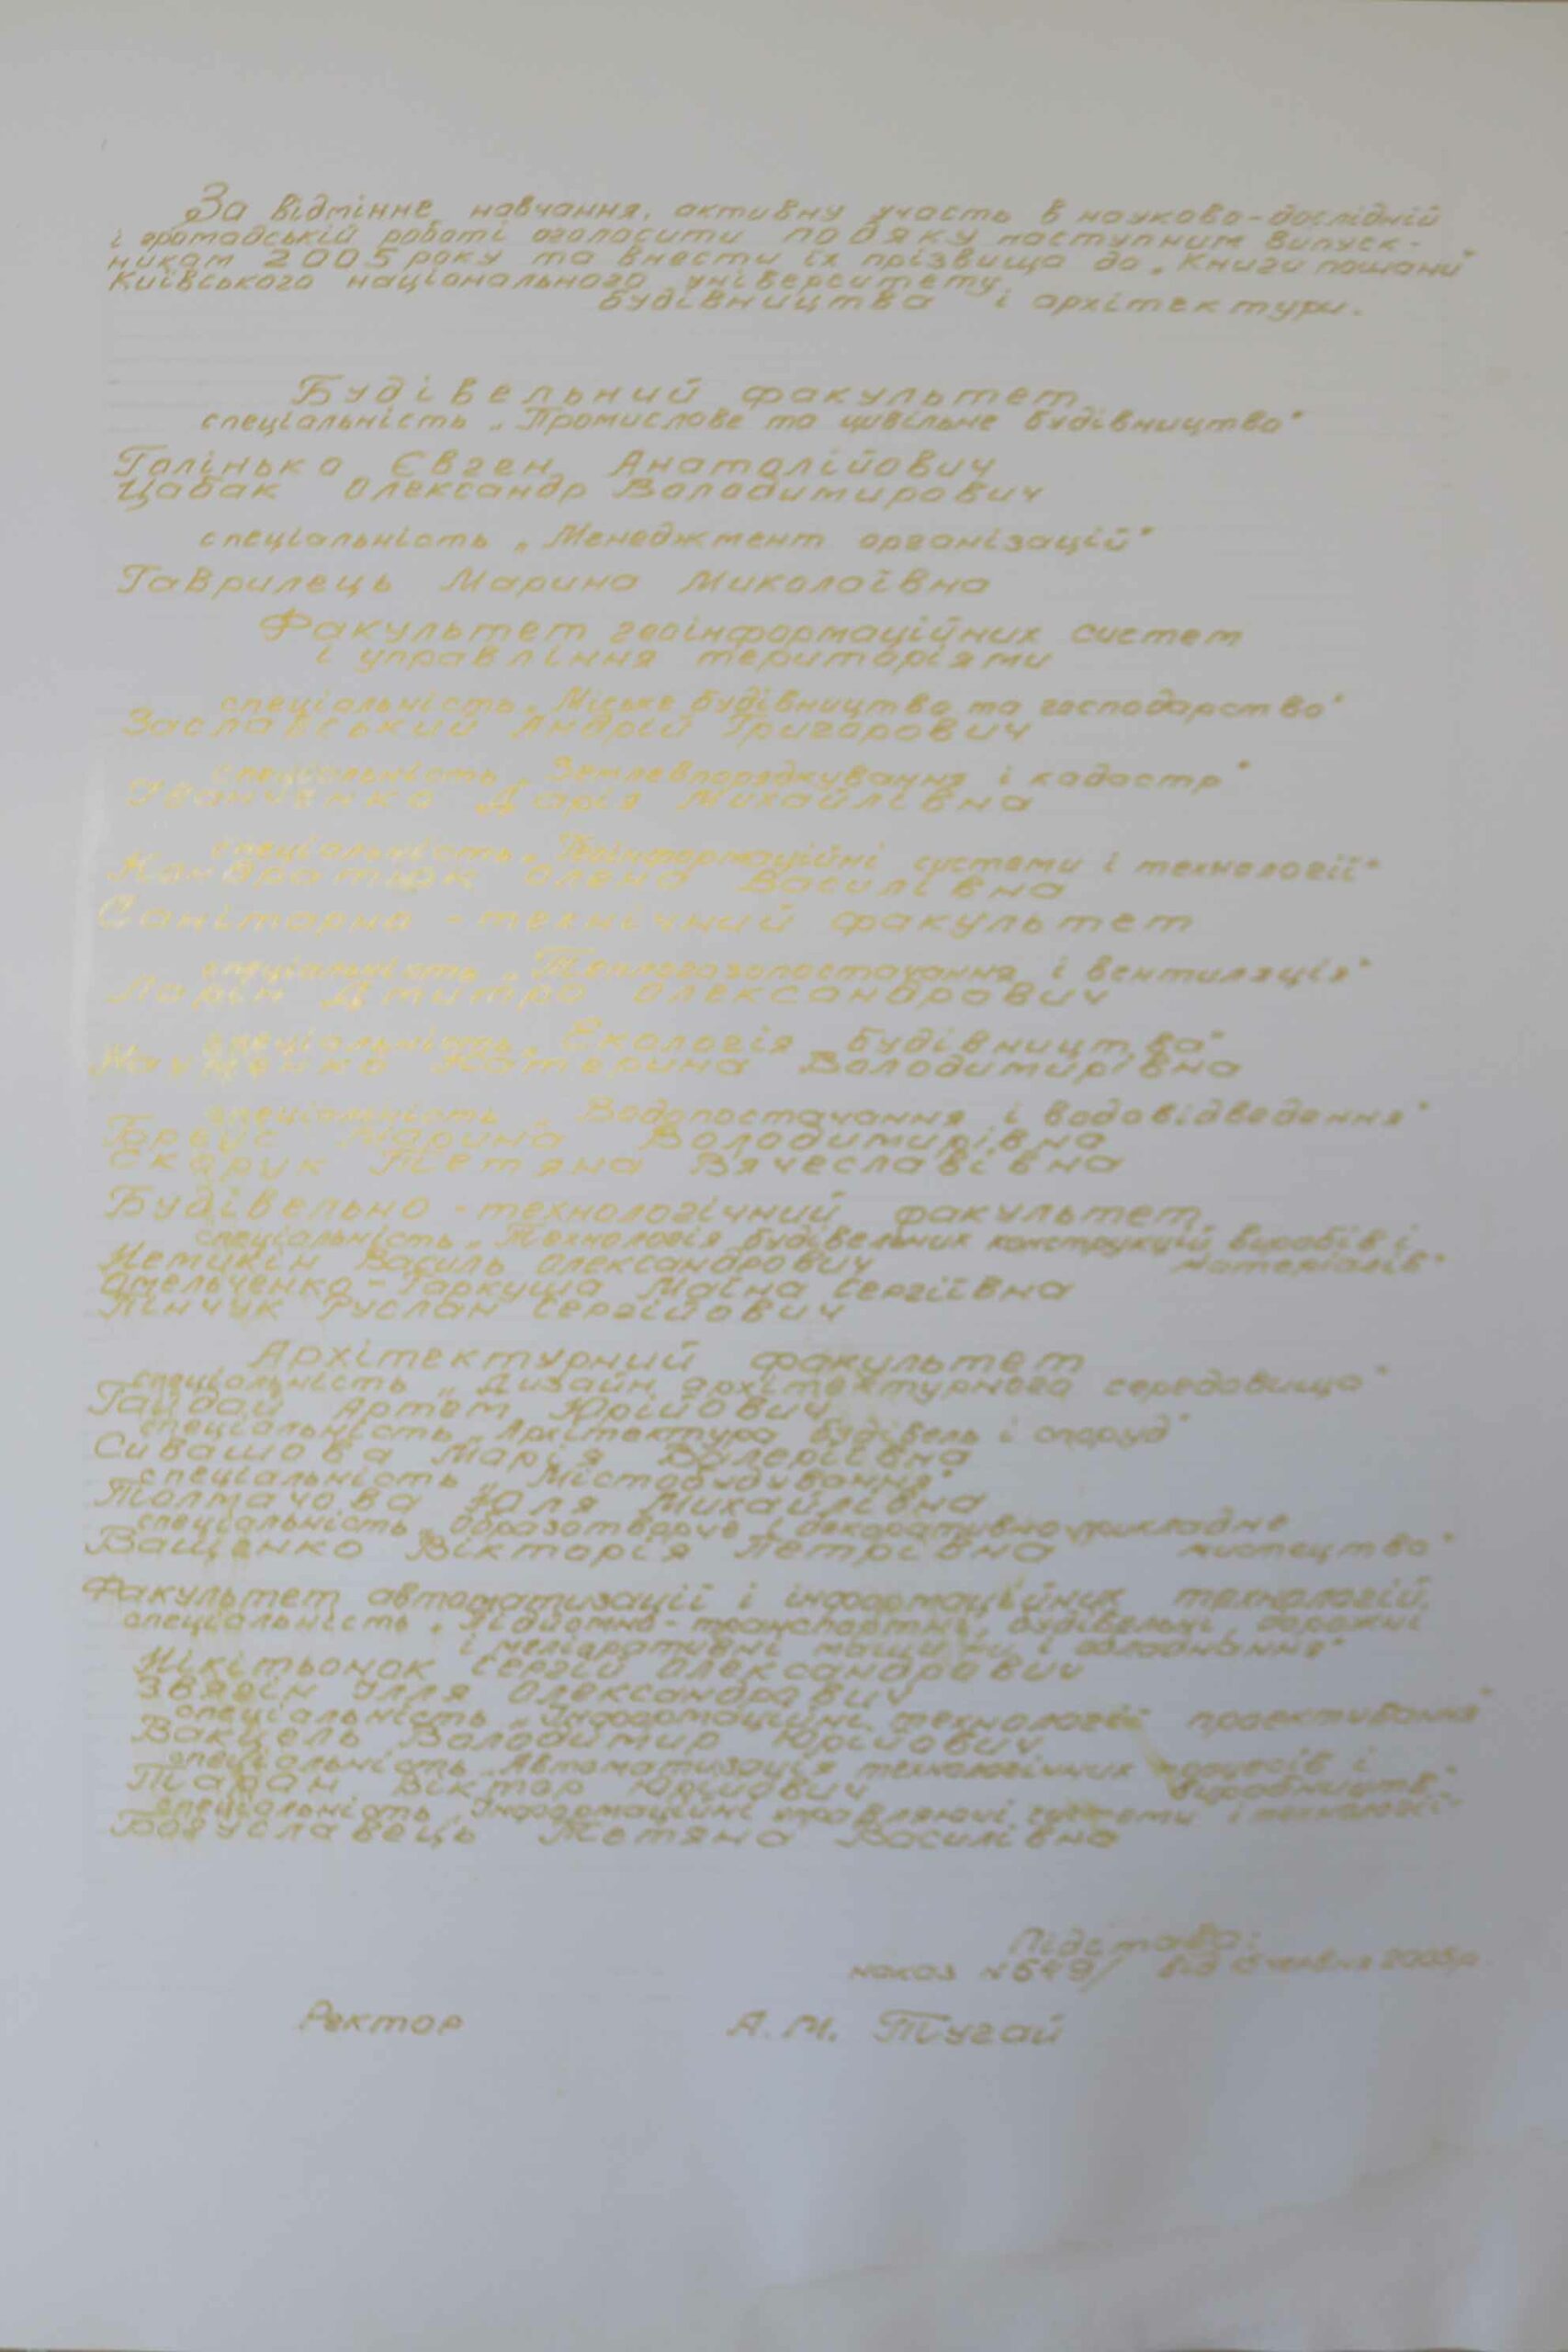 За відмінне навчання, активну участь в науково-дослідній
і громадській роботі оголосити подяку наступним випуск-
никам 2005 року та внести їх прізвища до „Книги пошани"
Київського національного університету
будівництва і архітектури.
Будівельний факультет
спеціальність „Промислове та цивільне будівництво"
Галінько Євген Анатолійович
Цабак Олександр Володимирович
спеціальність „Менеджмент організацій"
Гаврилець Марина Миколаївна
Факультет геоінформаційних систем
і управління територіями
спеціальність „Міське будівництво та господарство"
Заславський Андрій Григорович
спеціальність „Землевпорядкування і кадастр"
Іванченко Дарія Михайлівна
спеціальність „Геоінформаційні системи і технології"
Кондратюк Олена Василівна
Санітарно-технічний факультет
спеціальність „Теплогазопостачання і вентиляція"
Ларін Дмитро Олександрович
спеціальність „Екологія будівництва"
Науменко Катерина Володимирівна
спеціальність „Водопостачання і водовідведення"
Марина Володимирівна
Скарук Тетяна Вячеславівна
Будівельно-технологічний факультет
спеціальність „Технологія будівельних конструкцій виробів і
матеріалів"
Василь Олександрович
Омельченко-Гаркуша Маїна Сергіївна
Пінчук Руслан Сергійович
Архітектурний факультет
спеціальність „Дизайн архітектурного середовища"
Гайдай Артем Юрійович
спеціальність „Архітектура будівель і споруд"
Сивашова Марія Валеріївна
спеціальність „Містобудування"
Толмачова Юля Михайлівна
спеціальність „Образотворче і декоративно-прикладне
мистецтво"
Ващенко Вікторія Петрівна
Факультет автоматизації і інформаційних технологій
спеціальність „Підйомно-транспортні, будівельні, дорожні
і меліоративні машини і обладнання"
Нікітьонок Сергій Олександрович
Звягін Ілля Олександрович
спеціальність „Інформаційні технології проектування"
Вакцель Володимир Юрійович
спеціальність „Автоматизація технологічних процесів і
виробництв"
Таран Віктор Юрійович
спеціальність „Інформаційні управляючі системи і технології"
Богуславець Тетяна Василівна
Підстава:
наказ №649/ від червня 2005р
Ректор А.М. Тугай